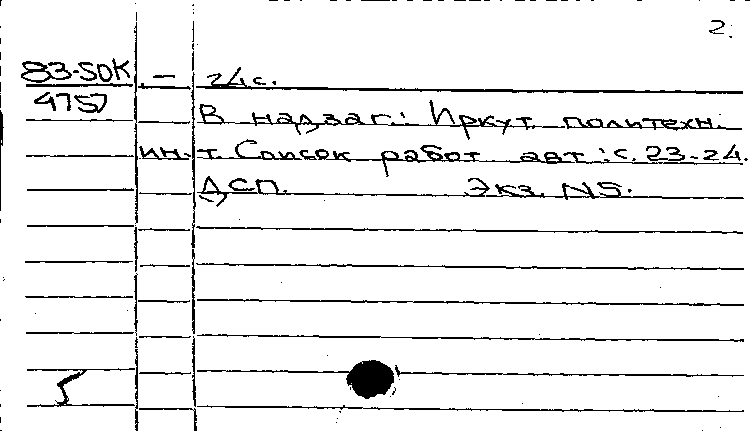 2.
83-5ДК - 24 с.
4757
В надзаг.: Иркут. политехн.
ин-т. Список работ авт.: с. 23-24.
ДСП. Экз. N5.
5